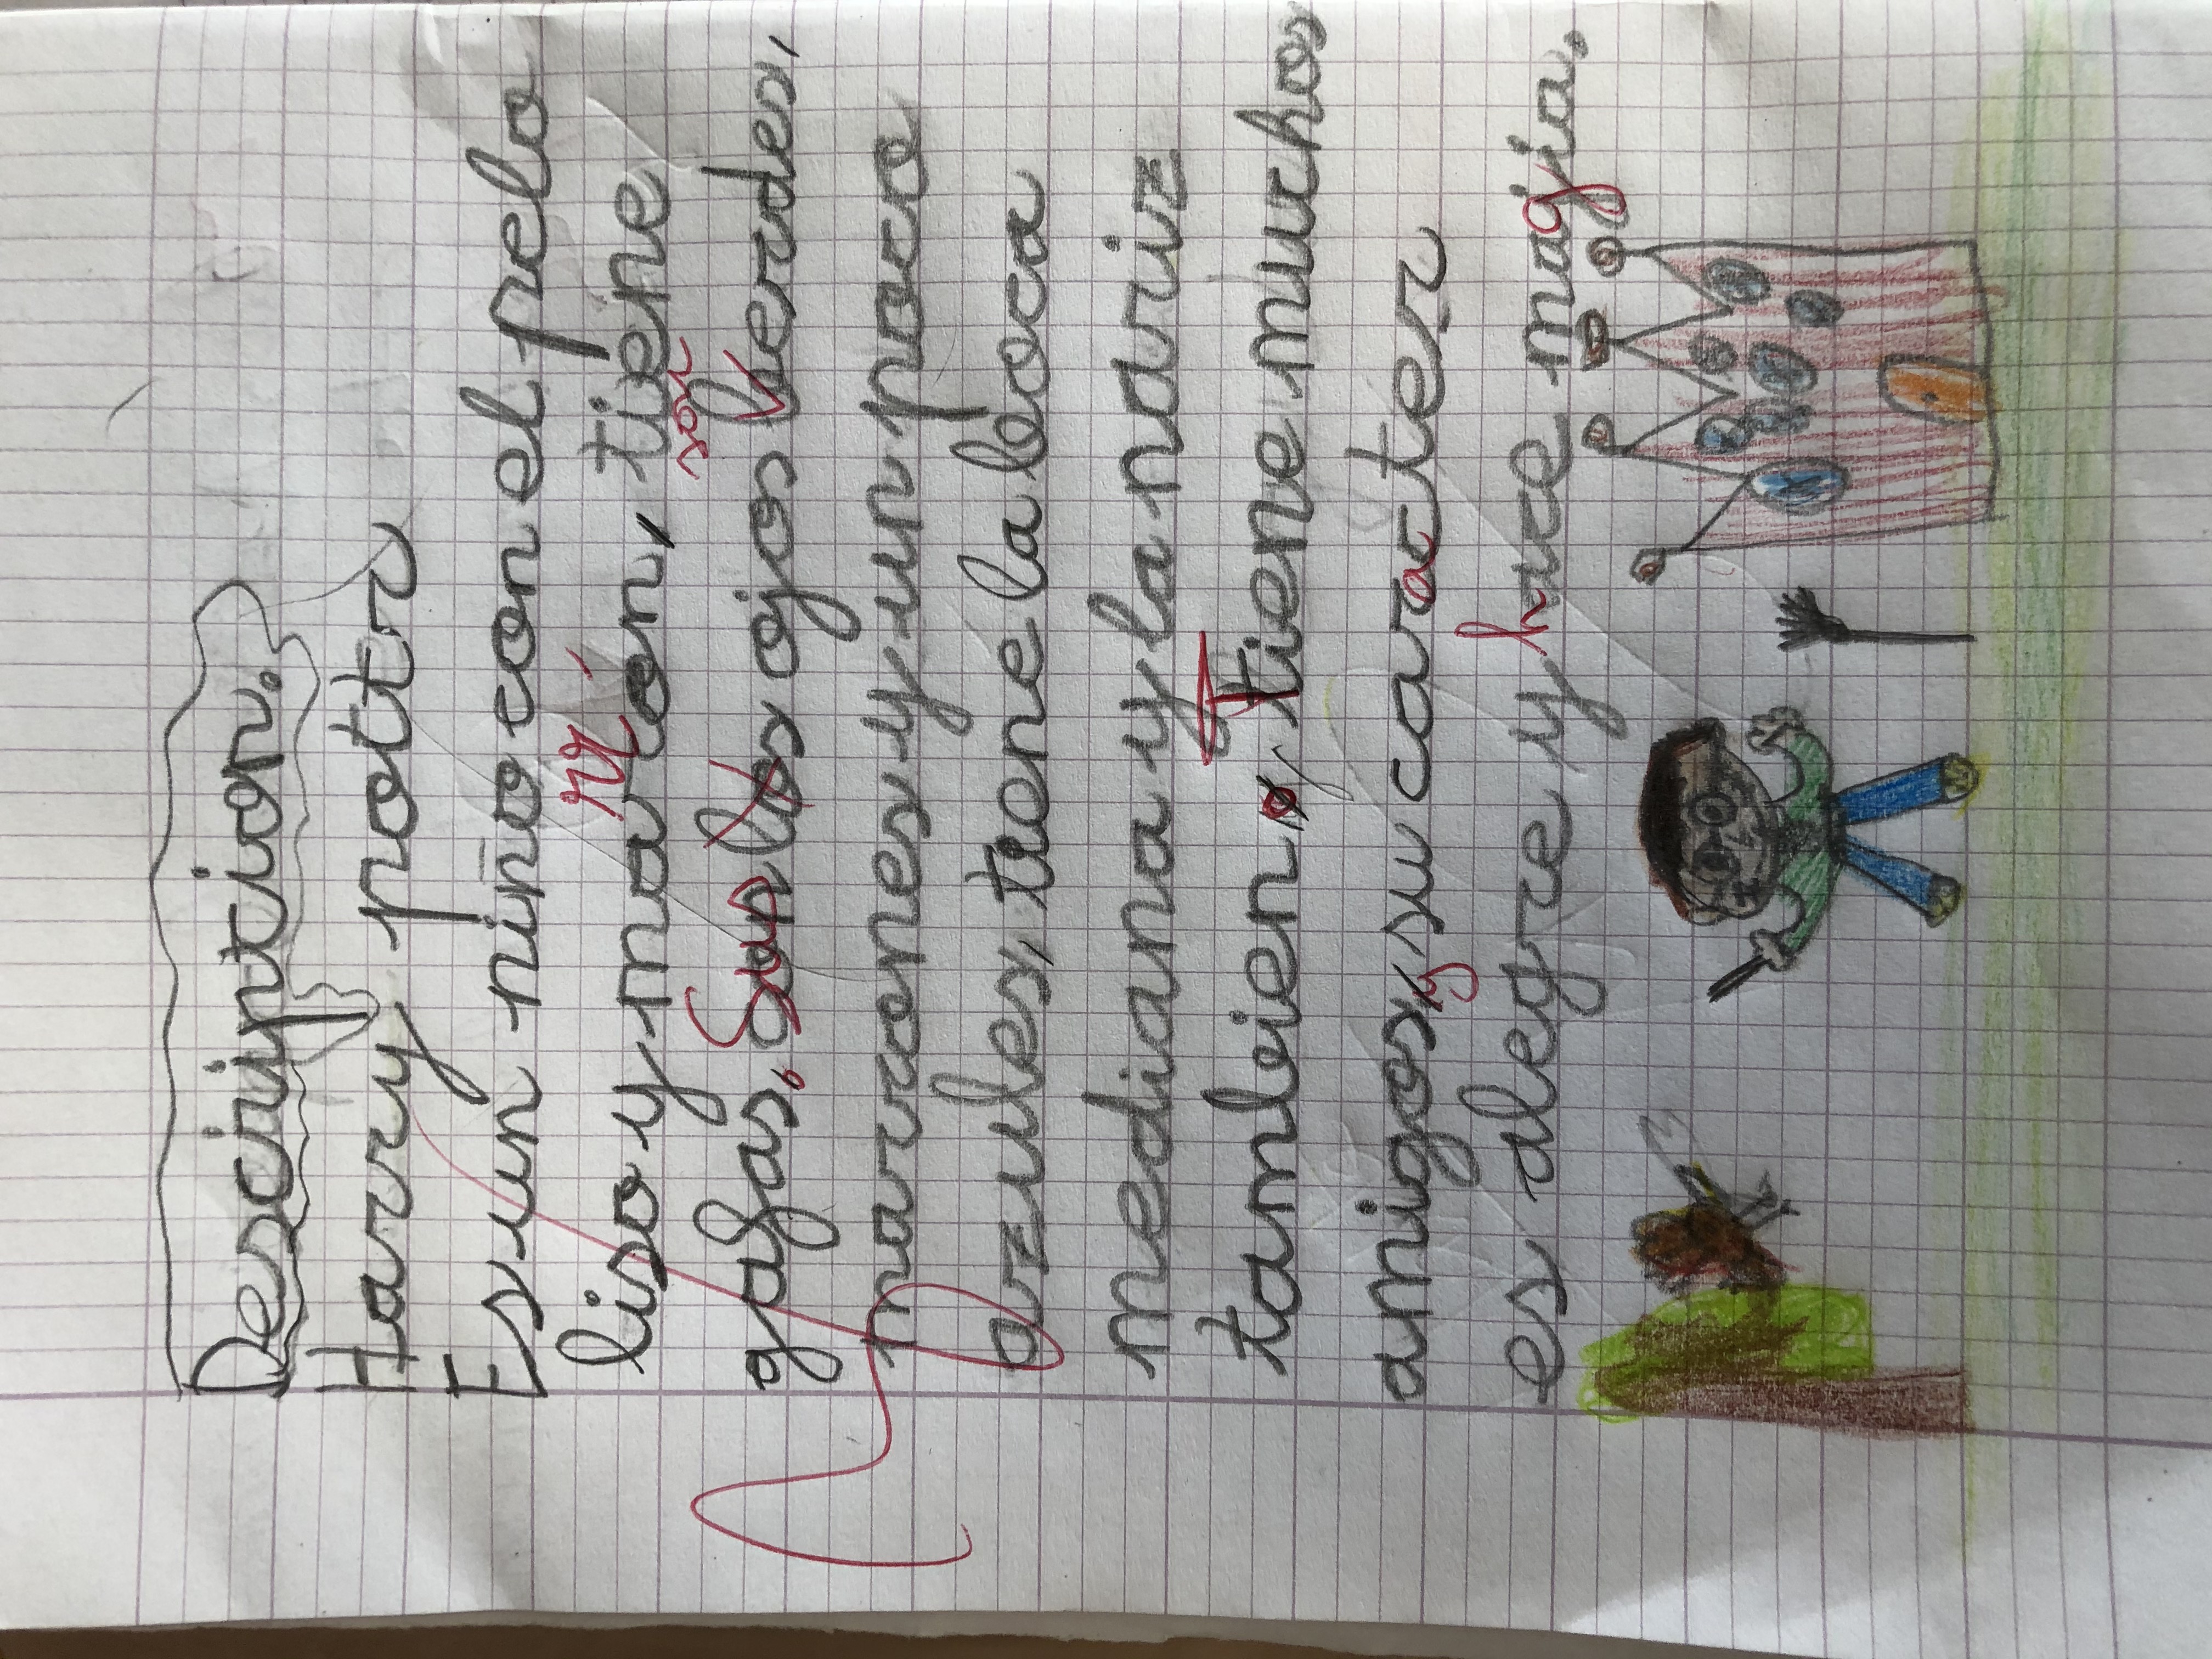 Description.
Harry pottr
Es un niño con el pelo
liso y marrón, tiene
son
gafas. Sus los ojos verdes,
marrones y un poco
azules, tiene la boca
mediana y la nariz
tambien, Tiene muchos
amigos y su caracter
es alegre y hace magia.